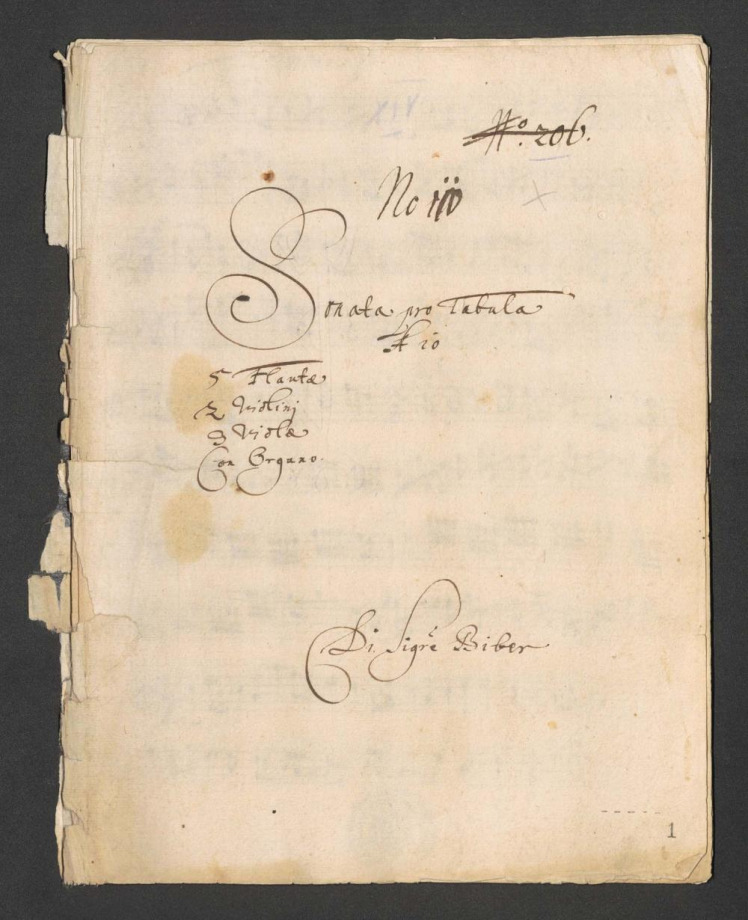 No. 206.
X
No
Sonata pro Tabula
A 10
5 Flautæ
2 Violinj
3 Violæ
Con Organo.
Di Sigre Biber
1